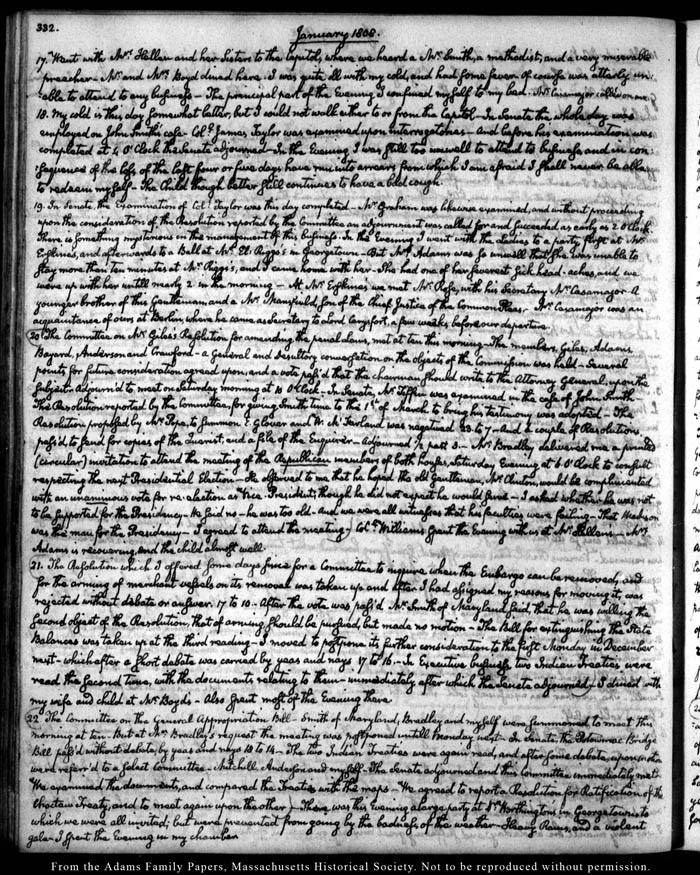 332.
January 1808.
17. Went with Mrs. Hellen and her Sisters to the Capitol, where we heard a Mr. Smith, a methodist, and a very miserable
preacher - Mr. and Mrs. Boyd dined here. I was quite ill with my cold, and had some fever of course was utterly un-
able to attend to any business - The principal part of the Evening I confined myself to my bed. Mr. Casamajor called on me
18. My cold is this day somewhat better, but I could not walk either to or from the Capitol - In Senate the whole day was
employed on John Smith's case - Coll. James Taylor was examined upon interrogatories - And before his examination was
completed at 4 O'Clock the Senate adjourned - In the Evening I was still too unwell to attend to business and in con-
sequence of the loss of the last four or five days have run into arrears from which I am afraid I shall never be able
to redeem myself - The Child though better still continues to have a bad cough.
19. In Senate, the examination of Coll. Taylor was this day completed - Mr. Graham was likewise examined, and without proceeding
upon the consideration of the Resolution reported by the Committee an adjournment was called for and succeeded as early as 2 O'Clock.
There is something mysterious in the management of this business - In the Evening I went with the Ladies to a party, first at Mr.
Erskine's, and afterwards to a Ball at Mr. El. Riggs's in Georgetown - But Mrs. Adams was so unwell that she was unable to
stay more than ten minutes at Mr. Riggs's, and I came home with her - She had one of her severest sick head-aches, and we
were up with her untill nearly 2. in the morning - At Mr. Erskine's we met Mr. Rose, with his Secretary Mr. Casamajor. A
younger brother of this Gentleman, and a Mr. Mansfield, son of the Chief Justice of the Common Pleas. Mr. Casamajor was an
acquaintance of ours at Berlin, where he came as Secretary to Lord Carysfort, a few weeks before our departure.
20. The Committee on Mr. Giles's Resolution for amending the penal laws, met at ten this morning - The members, Giles, Adams,
Bayard, Anderson and Crawford - a General and desultory conversation on the objects of the Commission was held - Several
points for future consideration agreed upon, and a vote pass'd that the chairman should write to the Attorney General, upon the
subject. Adjourn'd to meet on Saturday morning at 10 O'Clock - In Senate, Mr. Tiffin was examined in the case of John Smith
The Resolution reported by the Committee, for giving Smith time to the 1st. of March to bring his testimony was adopted - The
Resolution proposed by Mr. Pope, to summon E. Glover and W. McFarland was negatived 23. to 7 - And a couple of Resolutions
pass'd to send for copies of the and a file of the Enquirer - Adjourned past 3. - Mr. Bradley delivered me a printed
(circular) invitation to attend the meeting of the Republican members of both houses, Saturday Evening at 6 O'Clock to consult
respecting the next Presidential Election - He observed to me that he hoped the old Gentleman, Mr. Clinton, would be complimented
with an unanimous vote for re-election as Vice-President, though he did not expect he would serve - I asked whether he was not
to be supported for the Presidency - He said no - he was too old - and we were all witnesses that his faculties were failing - That Madison
was the man for the Presidency - I agreed to attend the meeting - Coll. Williams spent the Evening with us at Mr. Hellen's - Mrs.
Adams is recovering, and the child almost well.
21. The Resolution which I offered some days since for a Committee to inquire, when the Embargo can be removed, and
for the arming of merchant vessels on its removal was taken up and after I had assigned my reasons for moving it, was
rejected without debate or answer. 17 to 10. - After the vote was pass'd Mr. Smith of Maryland said, that he was willing the
second object of the Resolution, that of arming should be pursued, but made no motion - The Bill for extinguishing the State
Balances was taken up at the third reading - I moved to postpone its further consideration to the first Monday in December
next - which after a short debate was carried by yeas and nays 17 to 16. - In Executive business two Indian Treaties were
read the second time, with the documents relating to them - immediately after which the Senate adjourned - I dined with
my wife and child at Mr. Boyd's - Also spent most of the Evening there.
22. The Committee on the General Appropriation Bill - Smith of Maryland, Bradley and myself were summoned to meet this
morning at ten - But at Mr. Bradley's request the meeting was postponed untill Monday next - In Senate the Potowmac Bridge
Bill pass'd without debate, by yeas and nays 18 to 14. - The two Indian Treaties were again read, and after some debate, upon motion
were referr'd to a select committee - Mitchill Anderson and myself - The Senate adjourned and this Committee immediately met -
We examined the documents, and compared the Treaties with the maps - We agreed to report a Resolution for Ratification of the
Choctaw Treaty, and to meet again upon the other) - There was this Evening a large party at Dr. Worthington's in Georgetown to
which we were all invited; but were prevented from going by the badness of the weather - Heavy Rains, and a violent
gale - I spent the Evening in my chamber
From the Adams Family Papers, Massachusetts Historical Society. Not to be reproduced without permission.